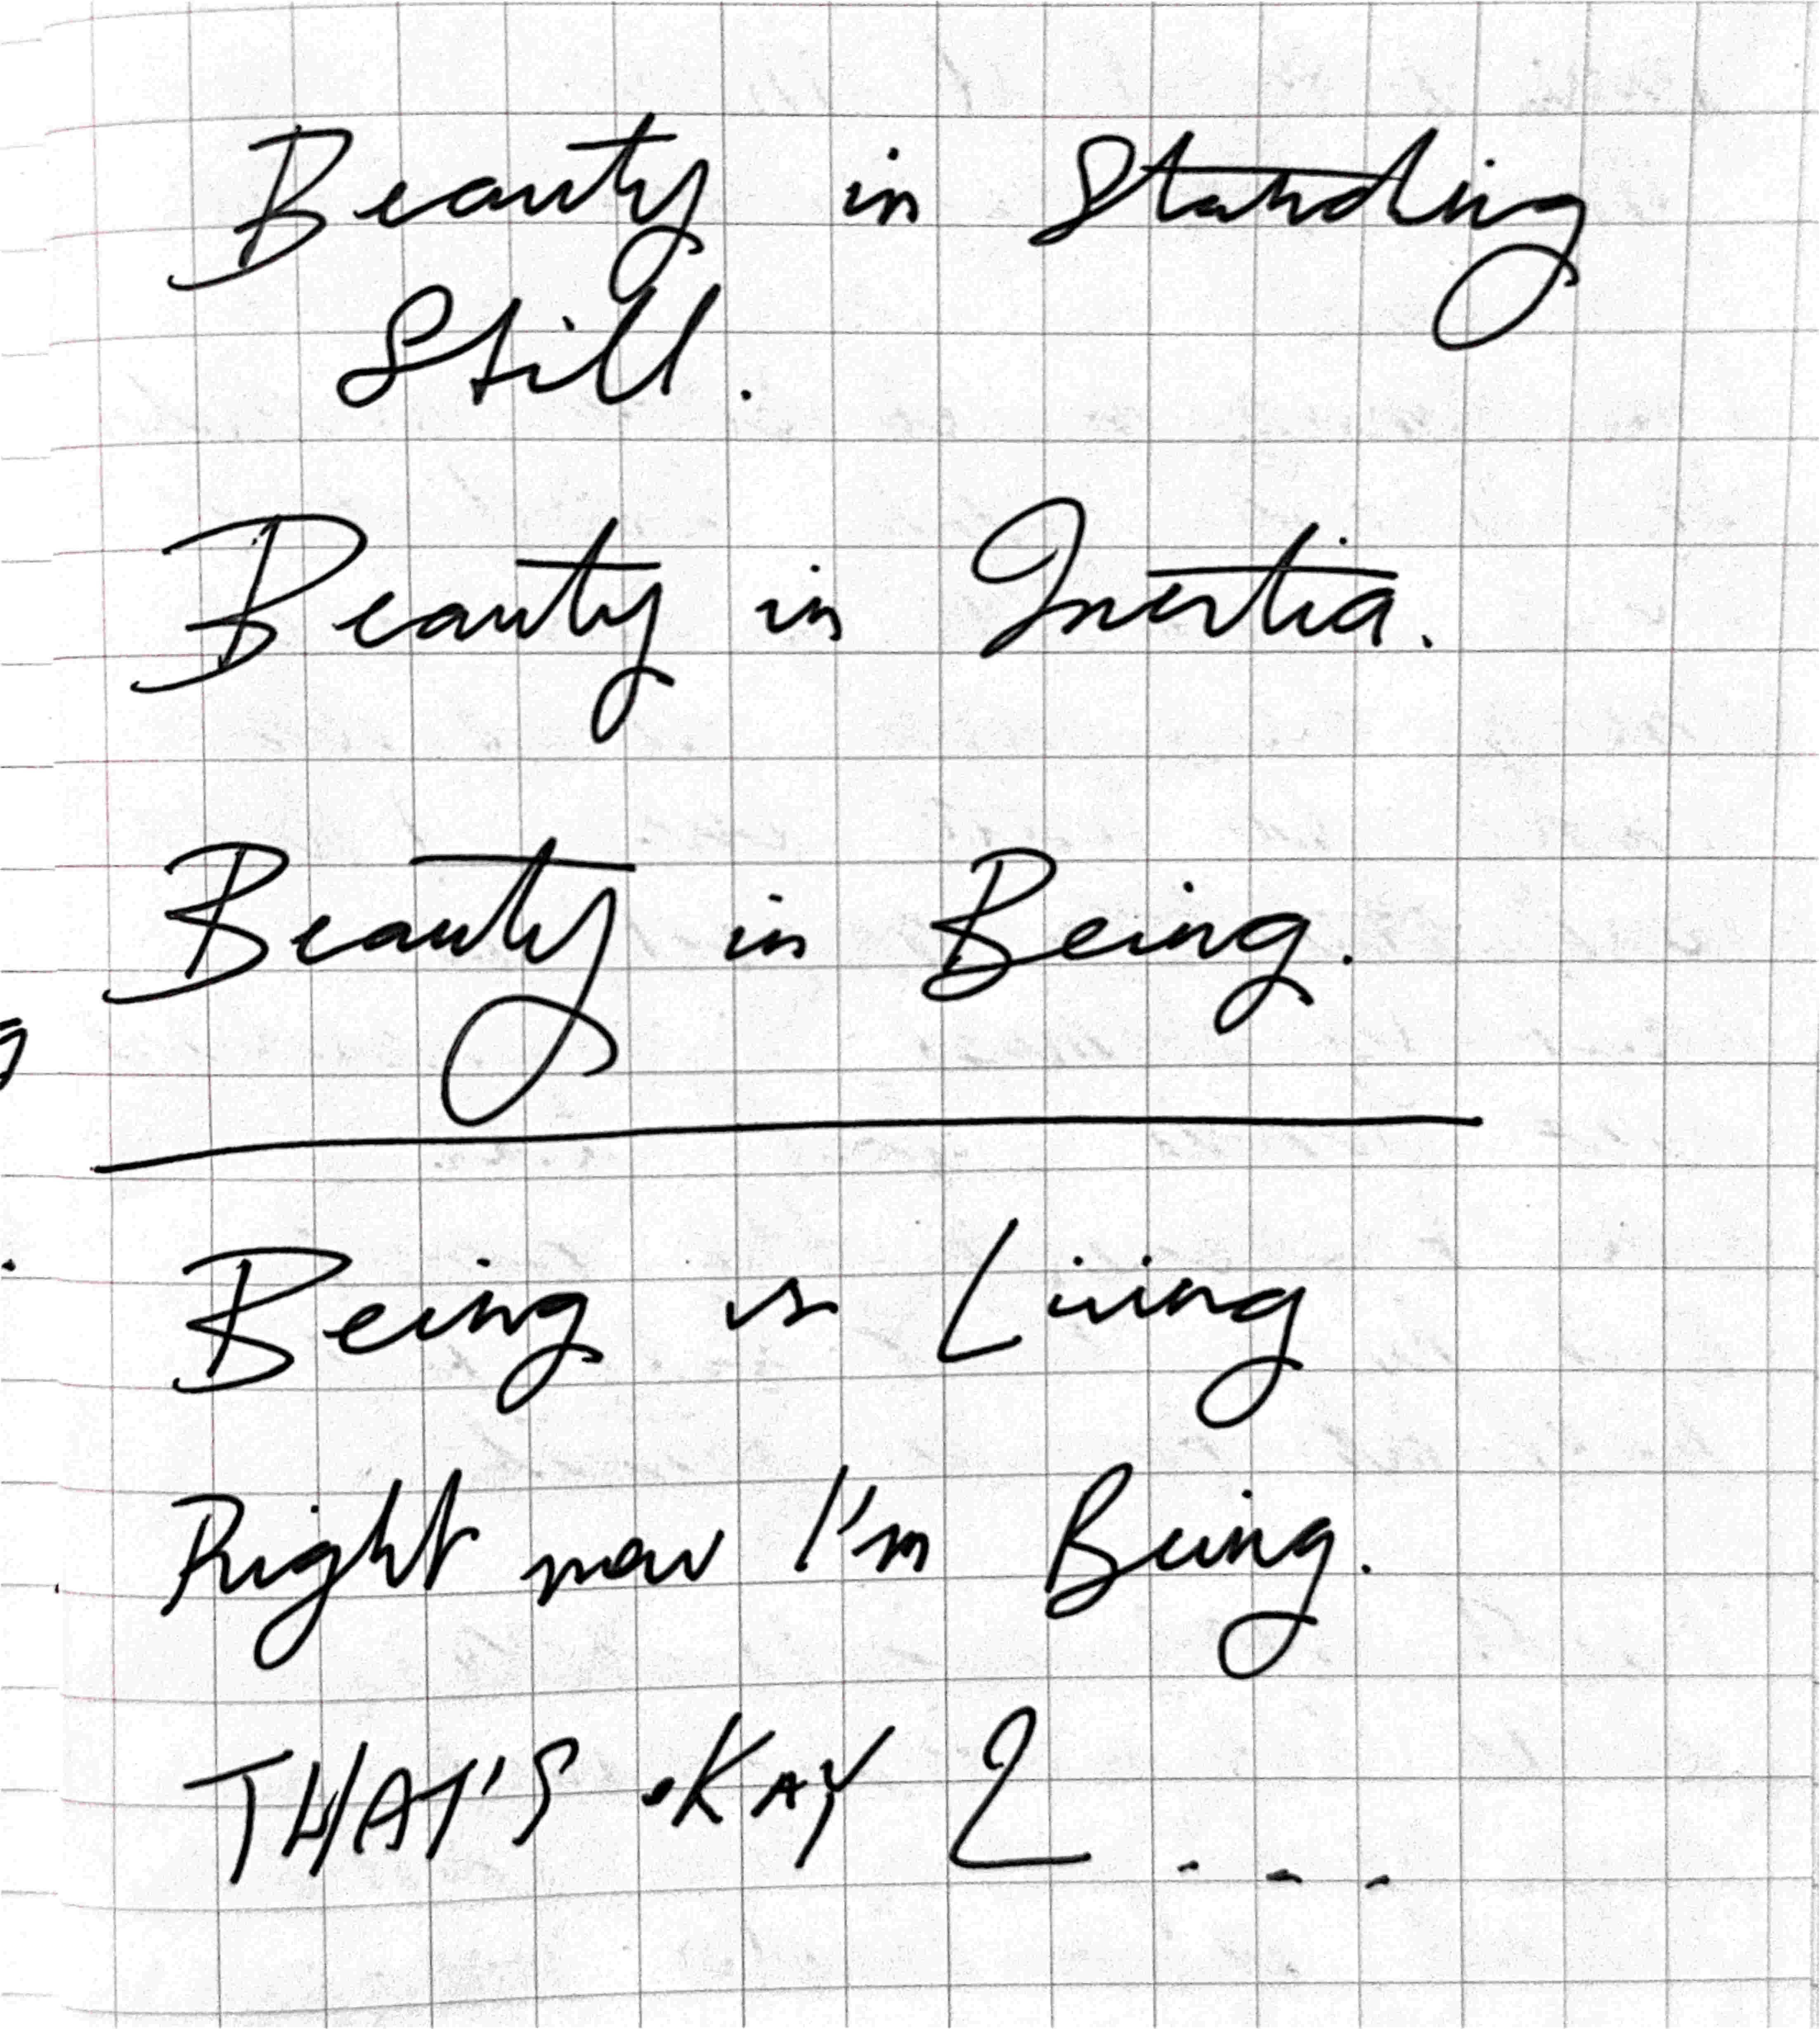 Beauty in Standing
Still.
Beauty in Inertia.
Beauty in Being.
Being is Living
Right now I'm Being.
THAT'S OKAY 2 ...